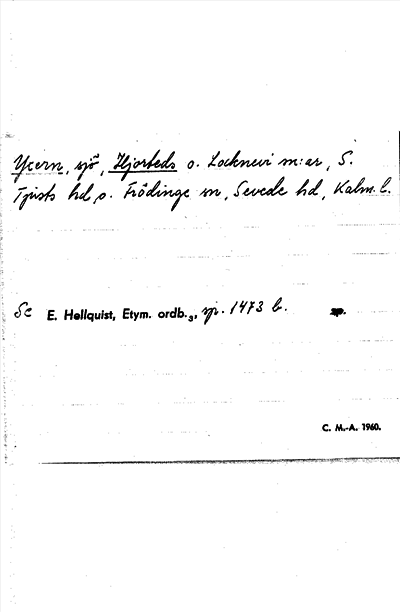 Ycern, sjö, Hjorteds o. Locknevi sn:ar, S.
Tjusts hd, o. Frödinge sn, Sevede hd, Kalm. l.
Se E. Hellquist, Etym. ordb.₃, sp. 1473 b.
C. M.-A. 1960.